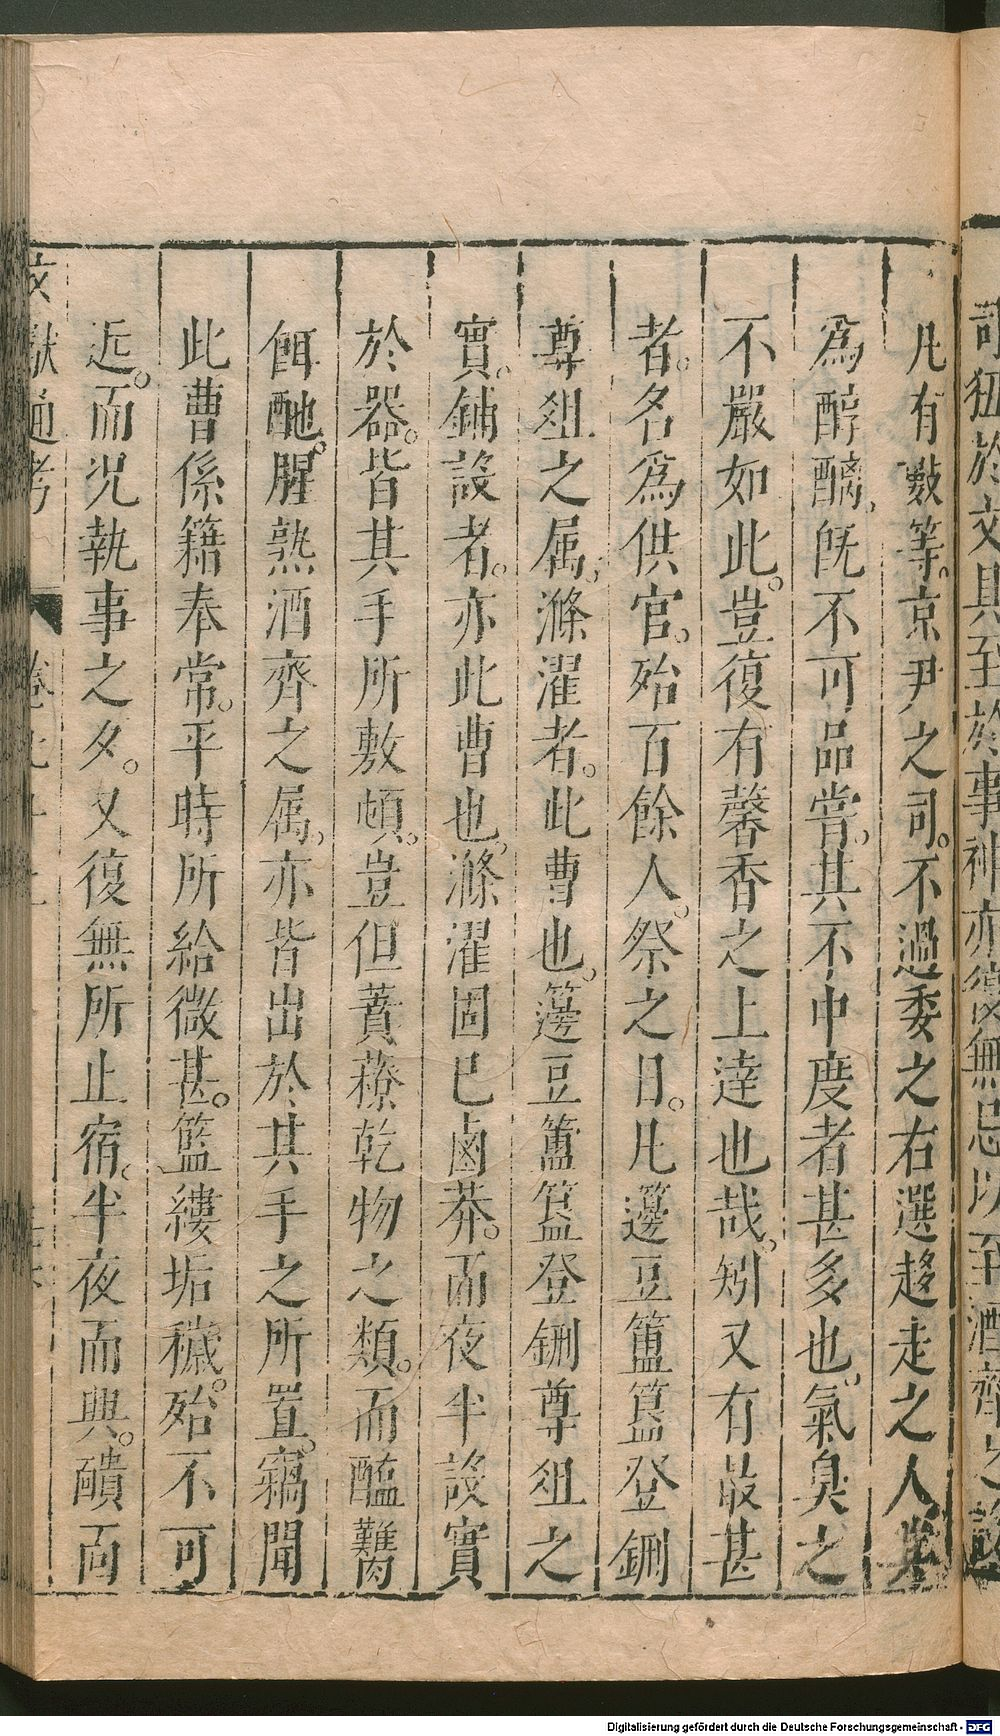 苛狃於文具至於事神亦復無忌以至酒齊之設
凡有數等。京尹之司。不過委之右選趍走之人
為醇醨。旣不可品嘗。其不中度者甚多也。氣臭之
不嚴如此。豈復有馨香之上達也哉。矧又有最甚
者。名為供官。殆百餘人。祭之日。凡籩豆簠簋登鉶
尊俎之属。滌濯者。此曹也。籩豆簠簋登鉶尊俎之
實。鋪設者。亦此曹也。滌濯固已鹵莽。而夜半設實
於器。皆其手所敷頓。豈但蕡𦽅乾物之類。而醢臡
餌酏。腥熟酒齊之属。亦皆出於其手之所置。竊聞
此曹係籍奉常。平時所給微甚。籃縷垢穢。殆不可
近。而况執事之夕。又復無所止宿。半夜而興。頮面
文獻通考